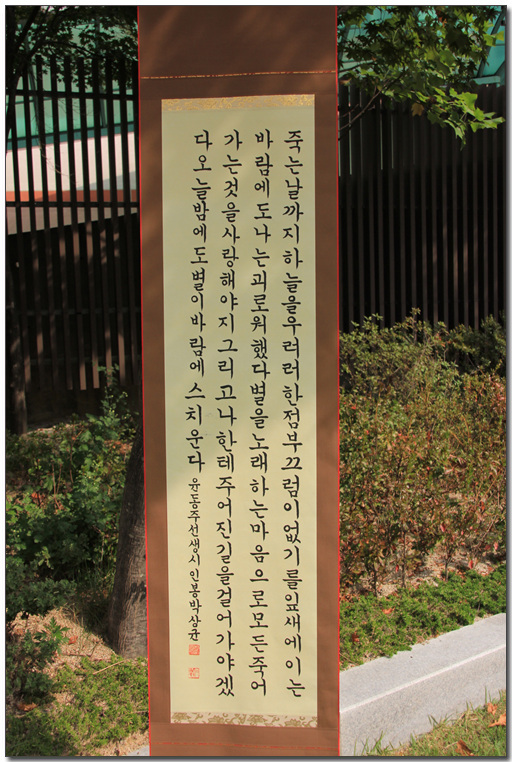 죽는날까지하늘을우러러한점부끄럼이없기를잎새에이는
바람에도나는괴로워했다별을노래하는마음으로모든죽어
가는것을사랑해야지그리고나한테주어진길을걸어가야겠
다오늘밤에도별이바람에스치운다 윤동주선생시인봉박상균